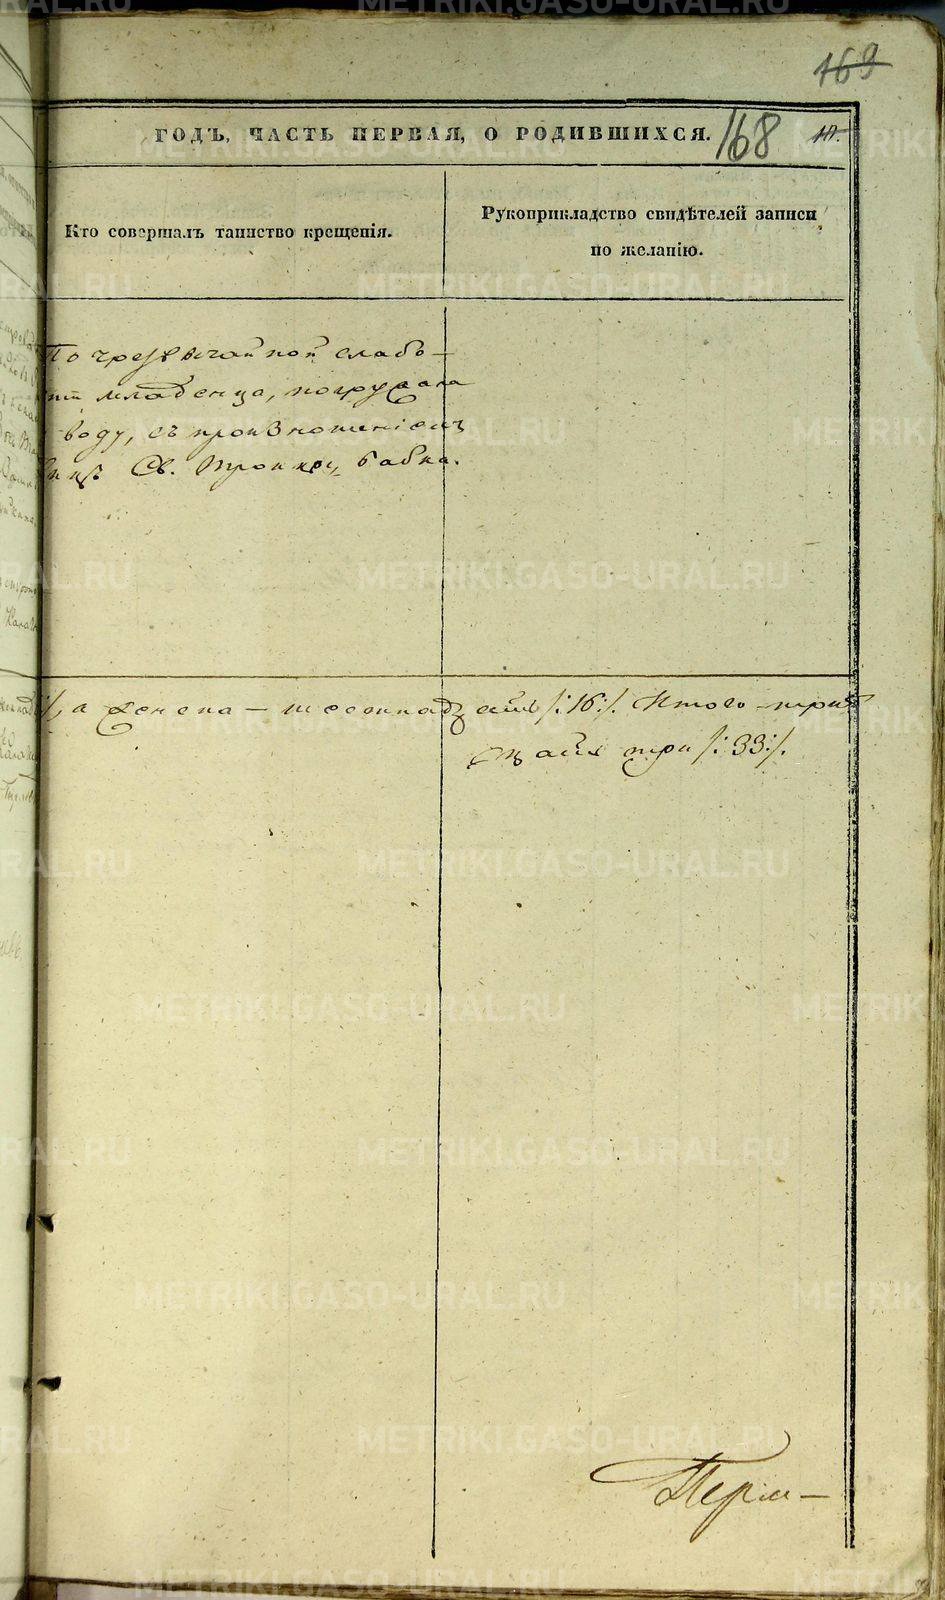 169
ГОДЪ, ЧАСТЬ ПЕРВАЯ, О РОДИВШИХСЯ. 168
Кто совершалъ таинство крещенія.
Рукоприкладство свидѣтелей записи
по желанію.
По чрезвычайной слабо-
сти младенца, погружала
воду, съ произношеніемъ
Св. Троицы, бабка.
а женска - шесннадцать /:16:/. Итого - трид
цать три /:33:/.
Перм-
METRIKI.GASO-URAL.RU